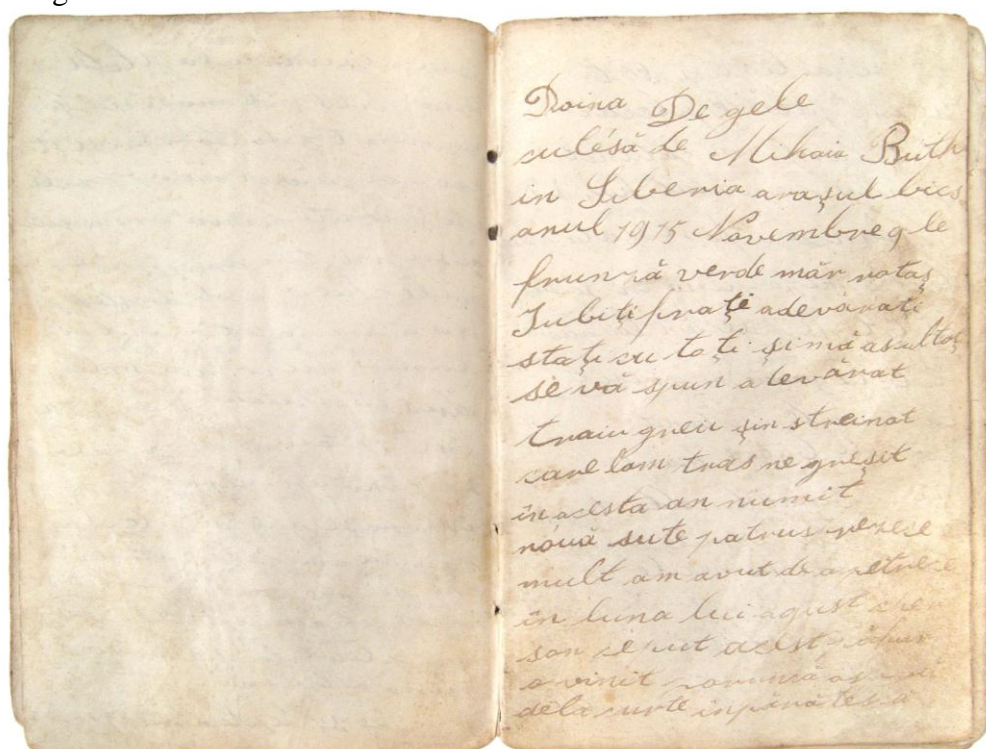 Doina De gele
culésă de Mihaia Buth
in Siberia arașul bics
anul 1915 Novembre 9 le
frunză verde măr rotaș
Iubiți frați adevărați
stați cu toți și mă ascultaț
se vă spun adevărat
traiu greu șin streinat
care lam tras ne greșit
în acesta an numit
nóuă sute patrus prezece
mult am avut de a petrece
în luna lui agust
san ceput acest
a vinit porunca
dela curte inpărătésa